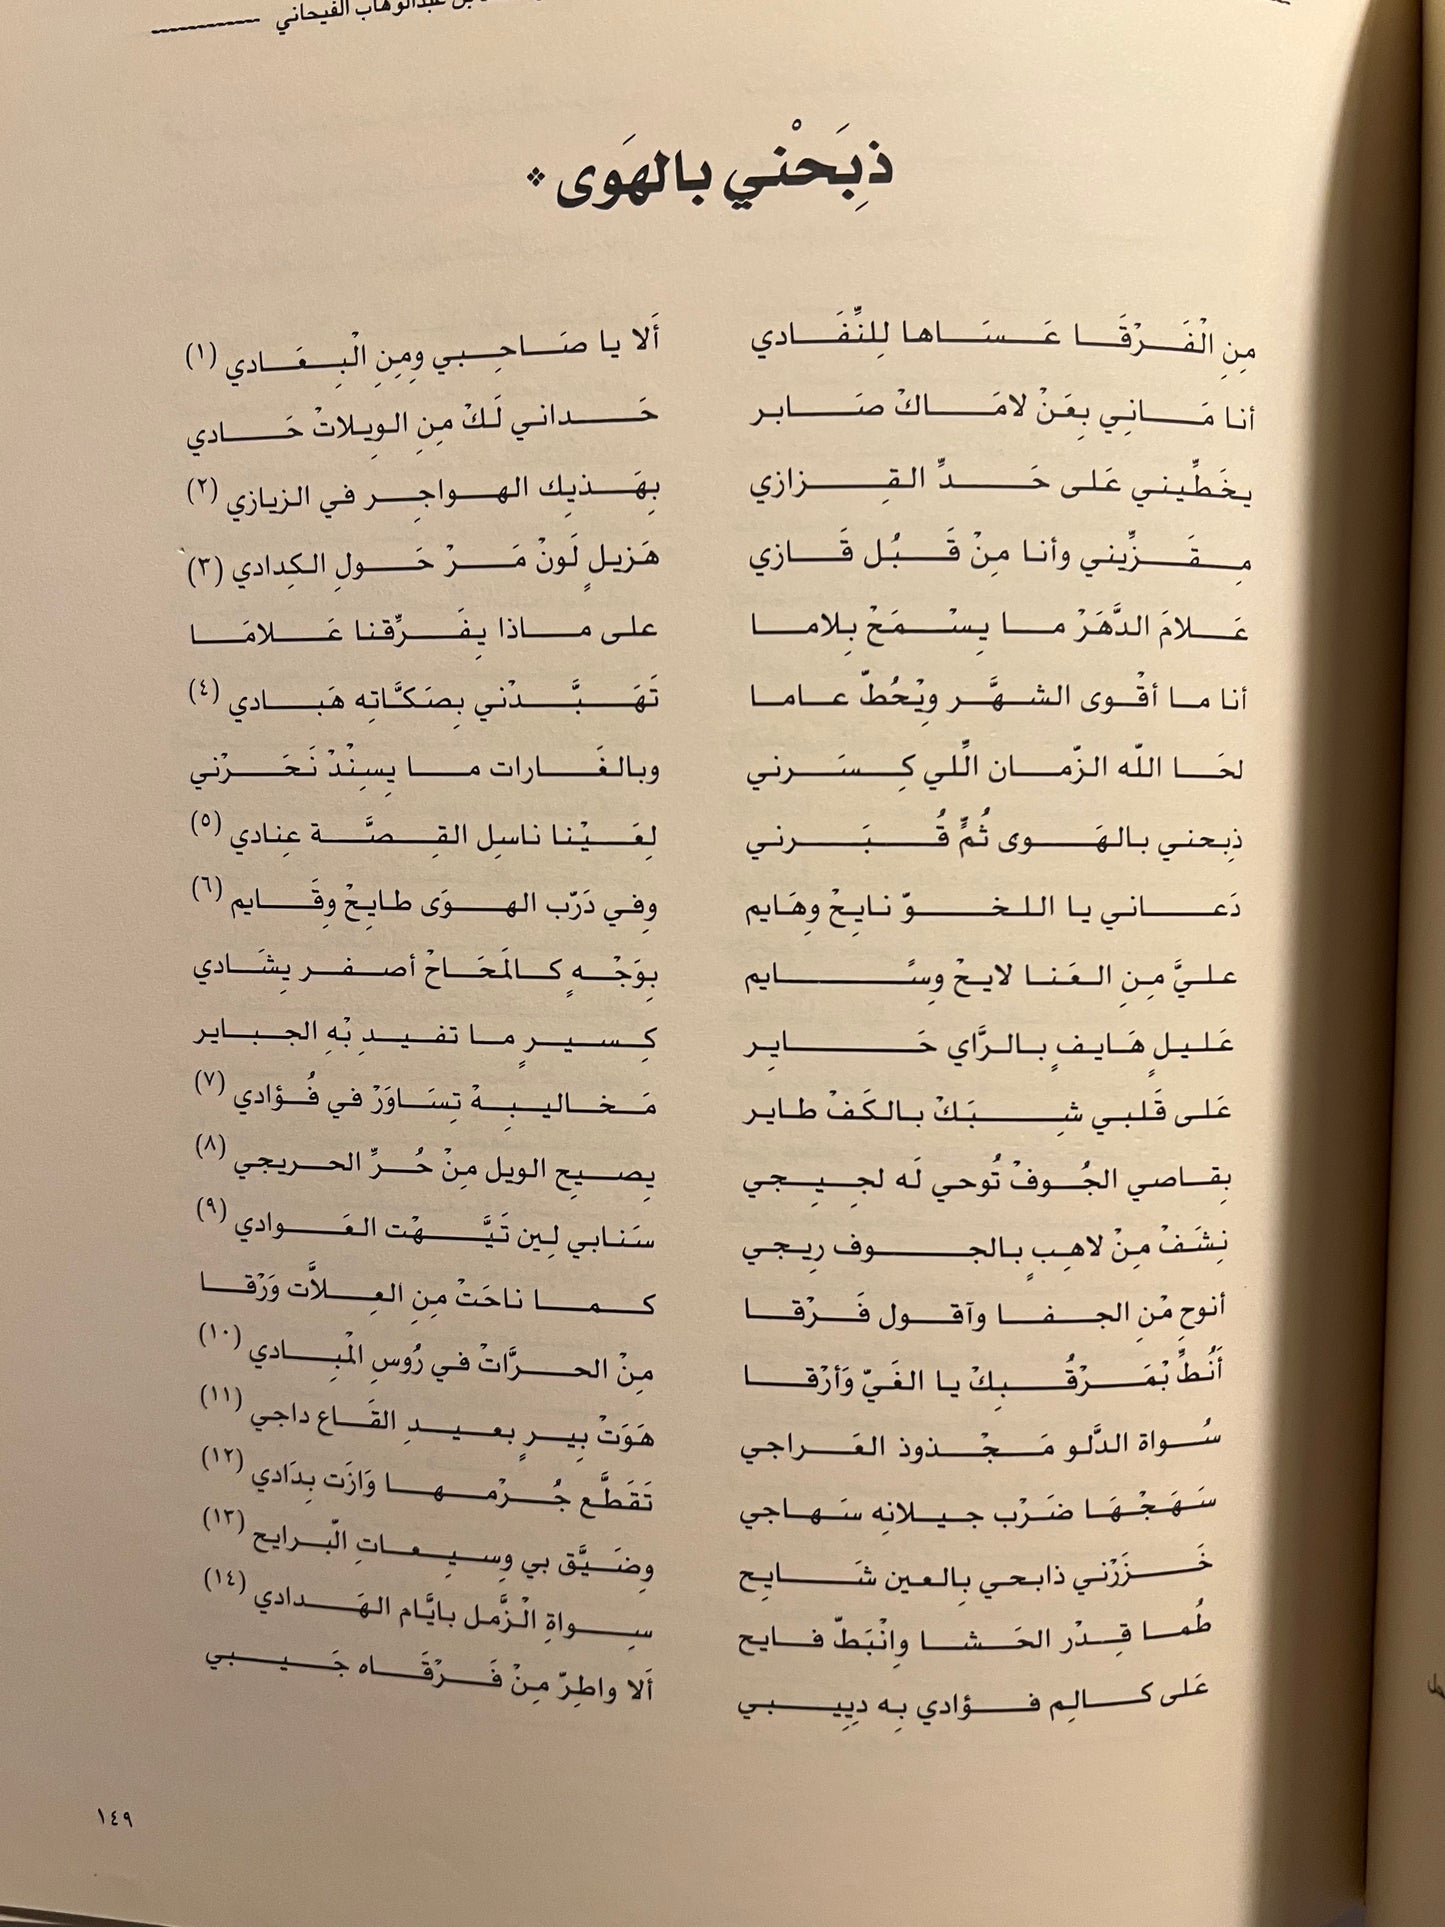 بن عبدالوهاب الفيحاني
ذِبَحْني بالهَوى
مِنِ الْفَرْقَا عَسَاها لِلنِّفَادي ألا يا صَاحِبي ومِنِ الْبِعَادي (١)
أنا مَانِي بِعَنْ لامَاكْ صَابر حَداني لَكْ مِنِ الوِيلاتْ حَادي
يخَطِّيني عَلى حَدِّ القِزازي بِهَذيك الهواجِر في الزيازي (٢)
مِقَزِّيني وأنا مِنْ قَبُل قَازي هَزيلٍ لَونْ مَرْ حَولِ الكِدادي (٣)
عَلامَ الدَّهَرْ ما يِسْمَحْ بِلاما على ماذا يِفَرِّقنا عَلامَا
أنا ما أقْوى الشهَّر ويْحُطّ عاما تَهَبَّدْني بِصَكَّاتِه هَبادي (٤)
لحَا اللّه الزّمان الِّلي كِسَرني وبالغَارات ما يِسِنْدْ نَحَرْني
ذِبحني بالهَوى ثُمٍّ قُبَرني لِعَيْنا ناسِل القِصَّة عِنادي (٥)
دَعاني يا اللخوّ نايِحْ وِهَايم وِفي دَرّب الهوَى طايِحْ وِقَايم (٦)
عليَّ مِنِ العَنا لايحْ وِسًايم بِوَجْهٍ كالمَحَاحْ أصفر يِشَادي
عَليلٍ هَايفٍ بالرَّاي حَايِر كِسيرٍ ما تفيدِ بْهِ الجباير
عَلى قَلبي شِبَكْ بالكَفْ طاير مَخاليبِهْ تِسَاوَرْ في فُؤادي (٧)
بِقاصي الجُوفْ تُوحي لَه لجِيجي يِصيح الويل مِنْ حُرِّ الحريجي (٨)
نِشَفْ مِنْ لاهِبٍ بالجوف رِيجي سَنابي لِين تَيَّهْت العَوادي (٩)
أنوحِ مْنِ الجفا وآقول فَرْقا كما ناحَتْ مِنِ العِلاَّت وَرْقا
أنُطِّ بْمَرْقُبِكْ يا الغَيّ وَأرْقا مِنْ الحرَّاتْ في رُوسِ الْمِبادي (١٠)
سُواة الدَّلو مَجْذوذ العَراجي هَوَتْ بِيرٍ بعيدِ القَاع داجي (١١)
سَهَجْهَا ضَرْب جيلانِه سَهاجي تَقَطَّع جُرْمها وَازَت بِدَادي (١٢)
خَزَرْني ذابحي بِالعين شَايِح وِضَيَّق بي وِسِيعاتِ الّبرايح (١٣)
طُما قِدْر الحَشا وِانْبَطّ فايح سِواةِ الْزَّمل بايَّام الهَدادي (١٤)
عَلى كالِم فؤادي بِه دِيِيبي ألا واطِرّ مِنْ فَرْقَاه جَيبي
١٤٩